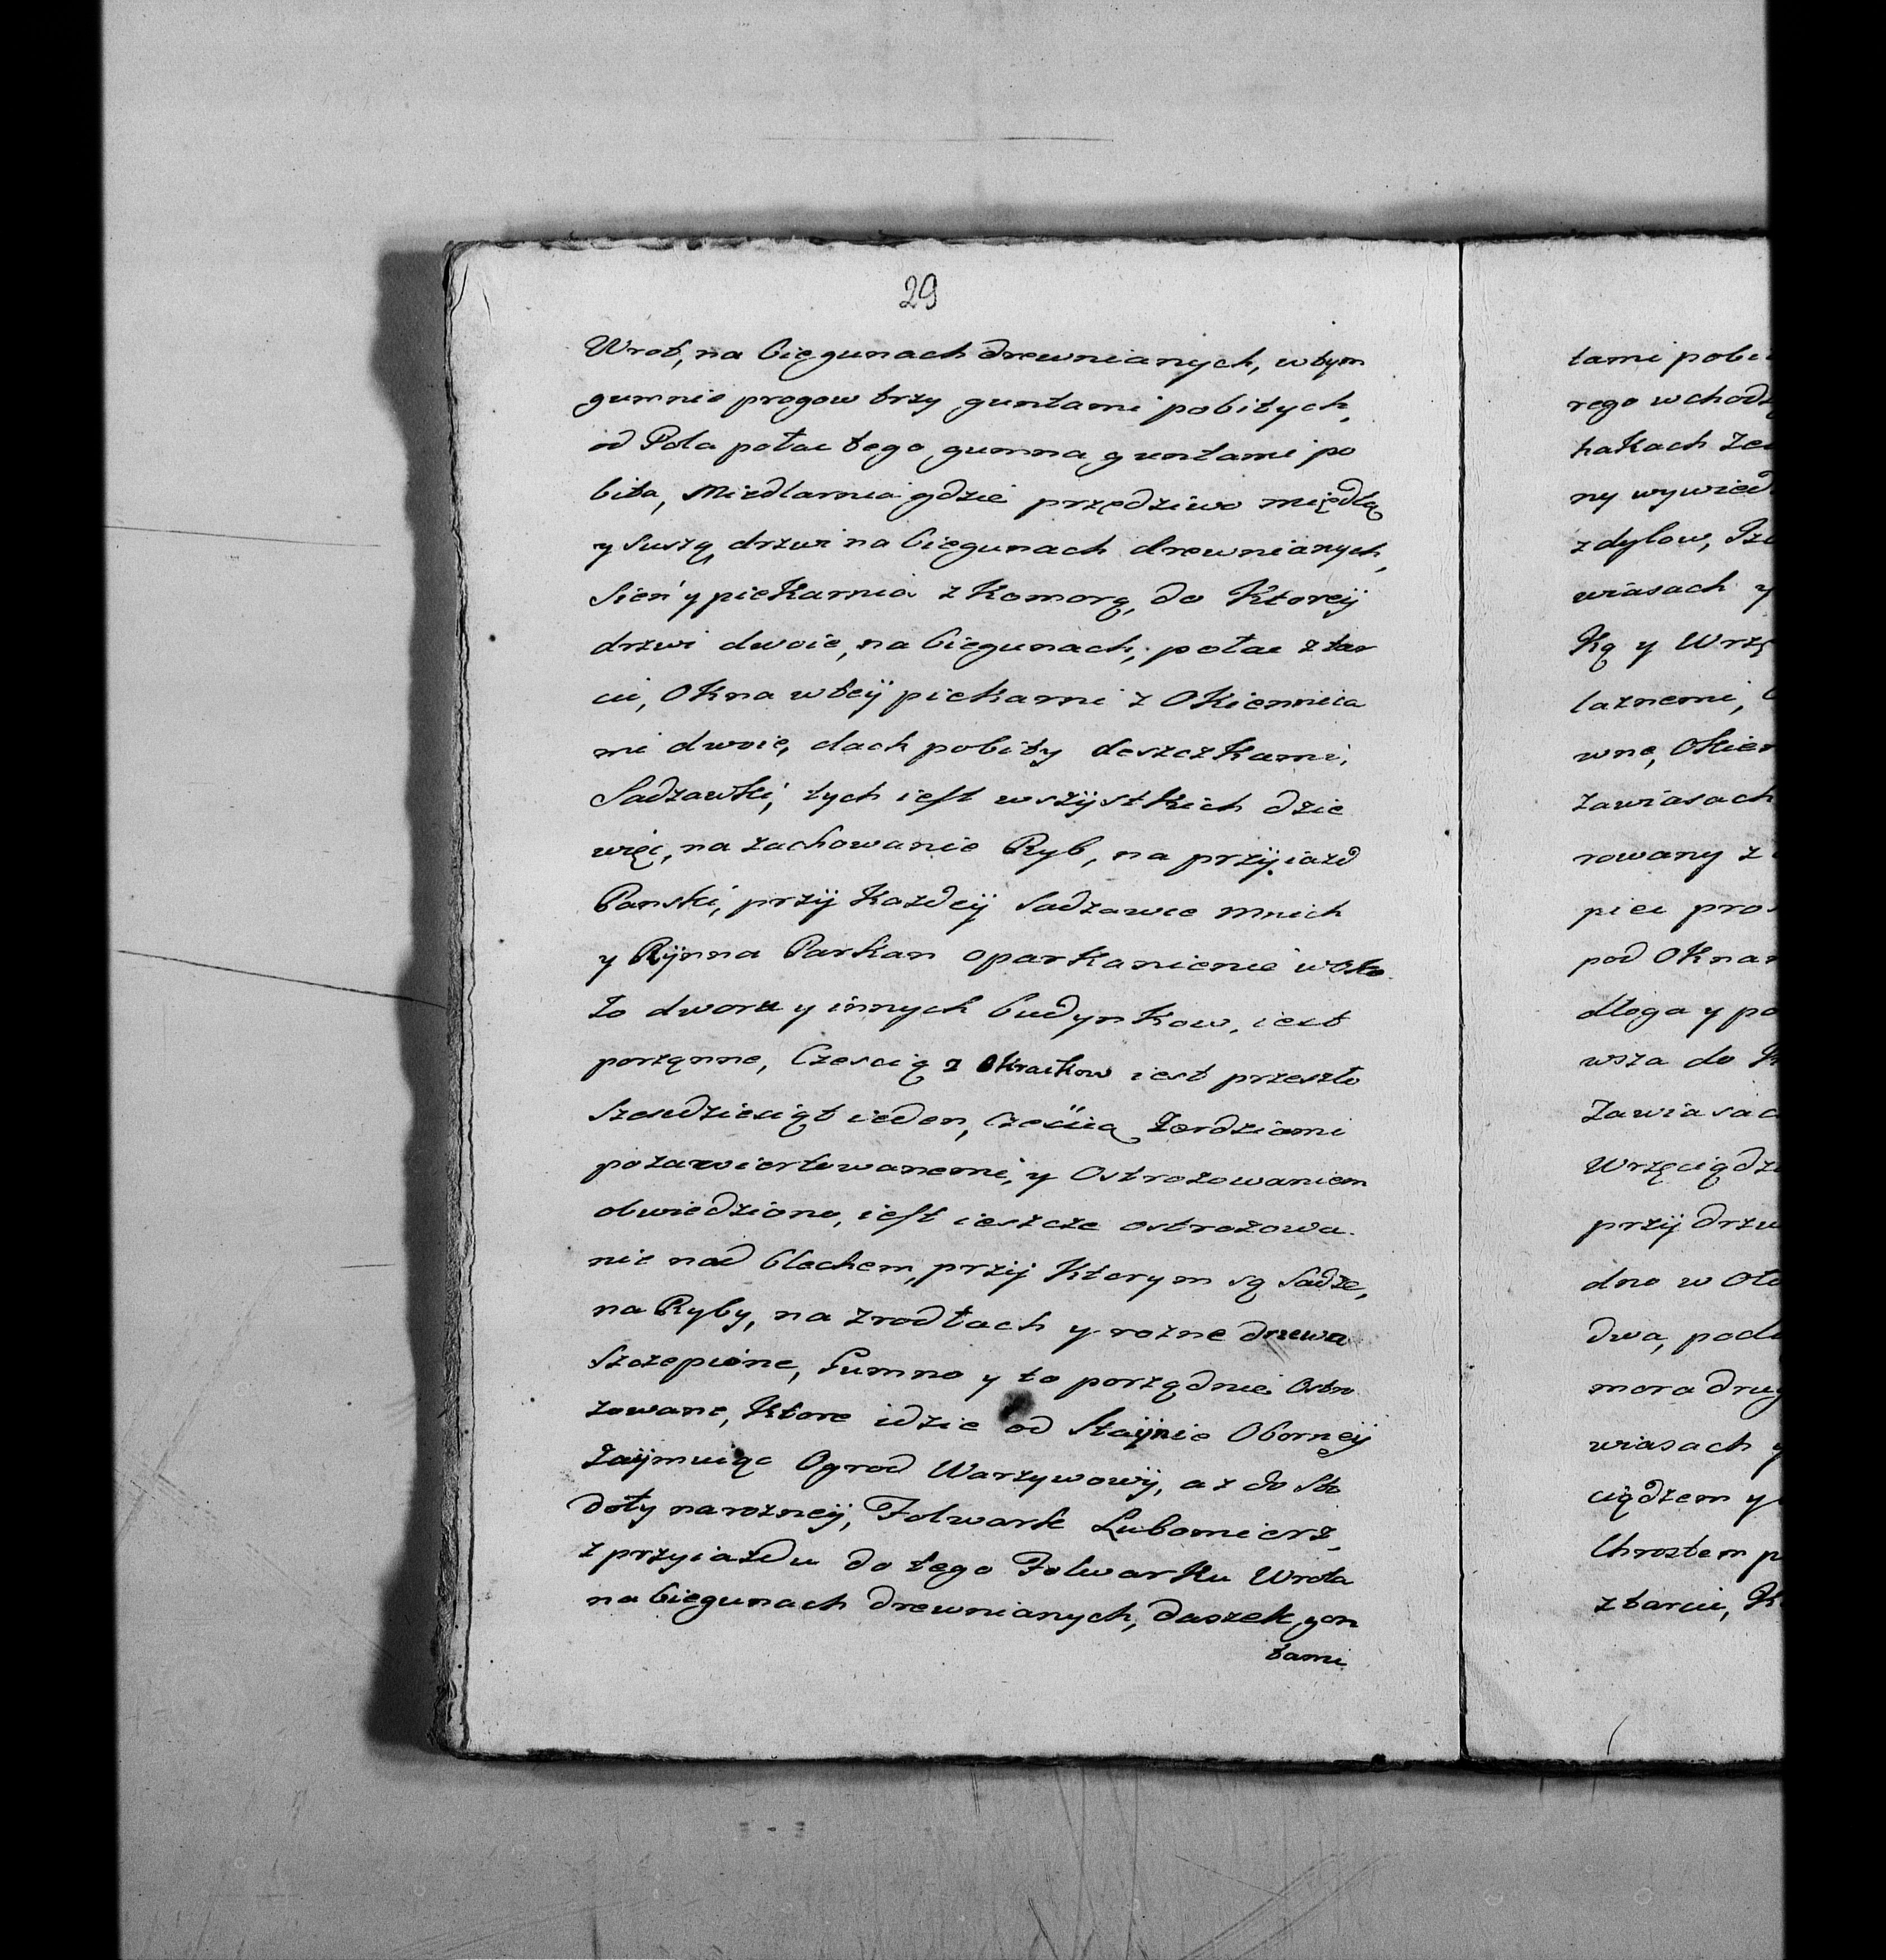 29
Wrot, na biegunach drewnianych, w tym
gumnie progow trzy guntami pobitych,
od Pola połac tego gumna guntami po
bita, Mizdlarnia gdzie przędziwo międlą
y suszą, drzwi na biegunach drewnianych,
Sień y piekarnia z Komorą, do Ktoreÿ
drzwi dwoie, na biegunach, połac z tar
cic, Okna w teÿ piekarni z Okiennica
mi dwoie, dach pobity deszczkami,
Sadzawki, tych iest wszÿstkich dzie
więc, na zachowanie Ryb, na przÿiazd
Panski, przÿ Kazdeÿ Sadzawce mnich
y Rÿnna Parkan oparkanienie w Oko
ło dworu y innych budynkow, iest
porządne, Czescią z Okraikow iest przeszło
Szescdziesiąt ieden, Częscią Zerdziami
pozawiertowanemi, y Ostrozowaniem
obwiedziono, iest ieszcze ostrozowa
nie nad blechem, przÿ Ktorym są Sadze,
na Ryby, na zrodłach y rozne drzewa
Szczepione, Gumno y to porządnie Ostro
zowane, Ktore idzie od Staÿnie Oborneÿ
Zaÿmuiąc Ogrod Warzywowÿ, az do Sto
doły narozneÿ, Folwark Lubomierz,
z przyiazdu do tego Folwarku Wrota
na biegunach drewnianych, daszek gon
tami
tami pobi
rego wchodz
hakach Zel
ny wywied
z dylow,
wiasach y
Ką y Wrzę
laznemi,
wne, Okien
Zawiasach
rowany z
piec pros
pod Oknam
dłoga y po
wsza do K
Zawiasac
Wrzęciądz
przÿ drzw
dno w Oło
dwa, podł
mora drug
wiasach y
ciądzem y
Chrostem p
z tarcic, K